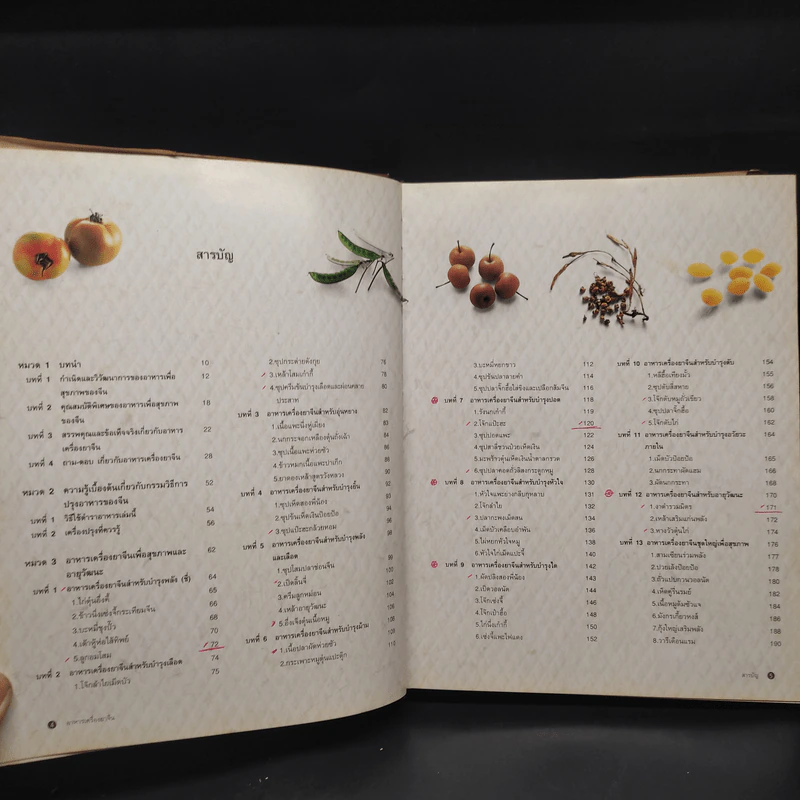 สารบัญ
หมวด 1 บทนำ 10
บทที่ 1 กำเนิดและวิวัฒนาการของอาหารเพื่อ 12
สุขภาพของจีน
บทที่ 2 คุณสมบัติพิเศษของอาหารเพื่อสุขภาพ 18
ของจีน
บทที่ 3 สรรพคุณและข้อเท็จจริงเกี่ยวกับอาหาร 22
เครื่องยาจีน
บทที่ 4 ถาม-ตอบ เกี่ยวกับอาหารเครื่องยาจีน 28
หมวด 2 ความรู้เบื้องต้นเกี่ยวกับกรรมวิธีการ 52
ปรุงอาหารของจีน
บทที่ 1 วิธีใช้ตำราอาหารเล่มนี้ 54
บทที่ 2 เครื่องปรุงที่ควรรู้ 56
หมวด 3 อาหารเครื่องยาจีนเพื่อสุขภาพและ 62
อายุวัฒนะ
บทที่ 1 อาหารเครื่องยาจีนสำหรับบำรุงพลัง (ชี่) 64
1.ไก่ตุ๋นอึ่งคี้ 65
2.ข้าวนึ่งเซ่งจี๊กระเทียมจีน 66
3.บะหมี่ซุงปั๊ว 68
4.เต้าหู้ห่อไส้ทิพย์ 70
5.ลูกยอมโสม 72
บทที่ 2 อาหารเครื่องยาจีนสำหรับบำรุงเลือด 74
1.โจ๊กลำไยเม็ดบัว 75
2.ซุปกระต่ายตังกุย 76
3.เหล้าโสมเก๋ากี้ 78
4.ซุปครีมข้นบำรุงเลือดและผ่อนคลาย 80
ประสาท
บทที่ 3 อาหารเครื่องยาจีนสำหรับอุ่นหยาง 82
1.เนื้อแพะนึ่งหู่เผี่ยง
2.นกกระจอกเหลืองตุ๋นถั่งเฉ้า
3.ซุปเนื้อแพะห่วยซัว
4.ข้าวหมกเนื้อแพะปาเก๊ก
5.ยาดองเหล้าสูตรวังหลวง
บทที่ 4 อาหารเครื่องยาจีนสำหรับบำรุงยิน
1.ซุปเห็ดสองพี่น้อง
2.ซุปข้นเห็ดเงินป้อยป้อ
3.ซุปแป๊ะฮะกล้วยหอม
บทที่ 5 อาหารเครื่องยาจีนสำหรับบำรุงพลัง
และเลือด
1.ซุปโสมปลาช่อนจีน
2.เป็ดลิ้นจี่
3.ครีมลูกหม่อน
4.เหล้าอายุวัฒนะ
5.อึ่งเจ็งตุ๋นเนื้อหมู
บทที่ 6 อาหารเครื่องยาจีนสำหรับบำรุงม้าม
1.เนื้อปลาผัดห่วยซัว
2.กระเพาะหมูตุ๋นแปะตุ๊ก 110
4 อาหารเครื่องยาจีน
3.บะหมี่หยกขาว 112
4.ซุปข้นปลาลายดำ 114
5.ซุปปลาจี้กฮื้อใส่ขิงและเปลือกส้มจีน 116
บทที่ 7 อาหารเครื่องยาจีนสำหรับบำรุงปอด 118
1.รังนกเก๋ากี้ 119
2.โจ๊กแป๊ะฮะ 120
3.ซุปปอดแพะ 122
4.ซุปสาลี่ชวนป๋วยเห็ดเงิน 124
5.มะพร้าวตุ๋นเห็ดเงินน้ำตาลกรวด 126
6.ซุปปลาคอดถั่วลิสงกระดูกหมู 128
บทที่ 8 อาหารเครื่องยาจีนสำหรับบำรุงหัวใจ 130
1.หัวใจแพะย่างกลีบกุหลาบ 131
2.โจ๊กลำไย 132
3.ปลากะพงเม็ดสน 134
4.เม็ดบัวเคลือบอำพัน 136
5.ไผ่หยกหัวใจหมู 138
6.หัวใจไก่เม็ดแปะจี้ 140
บทที่ 9 อาหารเครื่องยาจีนสำหรับบำรุงไต 142
1.ผัดปลิงสองพี่น้อง 143
2.เป็ดวอลนัต 144
3.โจ๊กเซ่งจี๊ 146
4.โจ๊กเป๋าฮื้อ 148
5.ไก่นึ่งเก๋ากี้ 150
6.เซ่งจี๊แพะไฟแดง 152
บทที่ 10 อาหารเครื่องยาจีนสำหรับบำรุงตับ 154
1.หลีฮื้อเทียงมั้ว 155
2.ซุปตับสี่สหาย 156
3.โจ๊กตับหมูถั่วเขียว 158
4.ซุปปลาจี้กฮื้อ 160
5.โจ๊กตับไก่ 162
บทที่ 11 อาหารเครื่องยาจีนสำหรับบำรุงอวัยวะ 164
ภายใน
1.เม็ดบัวป้อยป้อ 165
2.นกกระทาผัดแฮม 166
3.ผัดนกกระทา 168
บทที่ 12 อาหารเครื่องยาจีนสำหรับอายุวัฒนะ 170
1.งาดำรวมมิตร 171
2.เหล้าเสริมแก่นพลัง 172
3.หางวัวตุ๋นไก่ 174
บทที่ 13 อาหารเครื่องยาจีนชุดใหญ่เพื่อสุขภาพ 176
1.สามเซียนร่วมพลัง 177
2.ปวยเล้งป้อยป้อ 178
3.ฮั่วแปะกวนวอลนัต 180
4.เห็ดหู่รื่นรมย์ 182
5.เนื้อหมูต้มซัวแจ 184
6.มังกรเกี้ยวหงส์ 186
7.กุ้งใหญ่เสริมพลัง 188
8.วารีเดือนแรม 190
สารบัญ 5